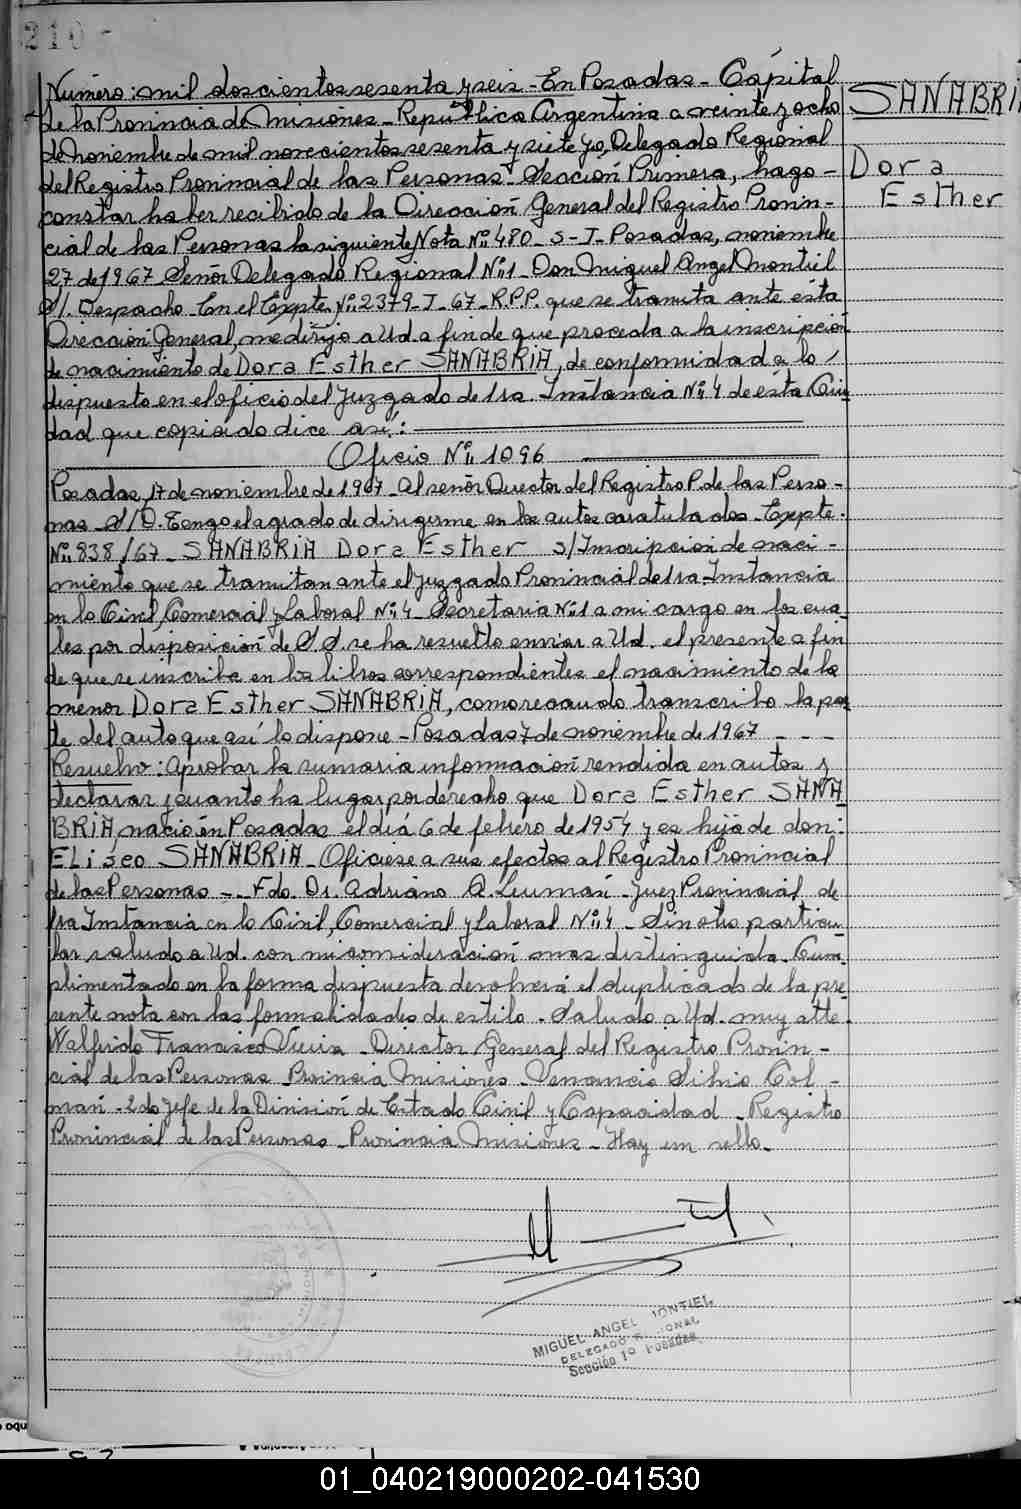 210-
Número: mil doscientos sesenta y seis - En Posadas - Capital
de la Provincia de Misiones - República Argentina a veinte y ocho
de noviembre de mil novecientos sesenta y siete yo, Delegado Regional
del Registro Provincial de las Personas - Sección Primera, hago -
constar haber recibido de la Dirección General del Registro Provin-
cial de las Personas la siguiente Nota Nº 480 - S - I - Posadas, noviembre
27 de 1967 Señor Delegado Regional Nº 1 - Don Miguel Angel Montiel
S/. Despacho - En el Expte. Nº 2379 - I - 67 - R.P.P. que se tramita ante ésta
Dirección General, me dirijo a Ud. a fin de que proceda a la inscripción
de nacimiento de Dora Esther SANABRIA, de conformidad a lo /
dispuesto en el oficio del Juzgado de 1ra. Instancia Nº 4 de ésta Ciu-
dad que copiado dice así:
Oficio Nº 1096
Posadas, 17 de noviembre de 1967 - Al señor Director del Registro P. de las Perso-
nas - S/D. Tengo el agrado de dirigirme en los autos caratulados - Expte.
Nº 838/67 - SANABRIA Dora Esther s/Inscripción de naci-
miento que se tramitan ante el Juzgado Provincial de 1ra. Instancia
en lo Civil, Comercial y Laboral Nº 4 - Secretaria Nº 1 a mi cargo en los cua-
les por disposición de S.S. se ha resuelto enviar a Ud. el presente a fin
de que se inscriba en los libros correspondientes el nacimiento de la
menor Dora Esther SANABRIA, como recaudo transcribo la par-
te del auto que así lo dispone - Posadas 7 de noviembre de 1967 - - -
Resuelvo: Aprobar la sumaria información rendida en autos y
declarar, en cuanto ha lugar por derecho que Dora Esther SANA
BRIA, nació en Posadas el día 6 de febrero de 1954 y es hija de don:
ELiseo SANABRIA - Oficiese a sus efectos al Registro Provincial
de las Personas - - Fdo. Dr. Adriano A. Leiman - Juez Provincial de
1ra Instancia en lo Civil, Comercial y Laboral Nº 4 - Sin otro particu-
lar saludo a Ud. con mi consideración mas distinguida. Cum-
plimentado en la forma dispuesta devolverá el duplicado de la pre-
sente nota con las formalidades de estilo. Saludo a Ud. muy atte.
Walfrido Francisco Vieira - Director General del Registro Provin-
cial de las Personas Provincia Misiones - Venancio Silvio Col-
mán - 2do Jefe de la División de Estado Civil y Capacidad - Registro
Provincial de las Personas - Provincia Misiones - Hay un sello.
SANABRIA
Dora
Esther
MIGUEL ANGEL MONTIEL
DELEGADO REGIONAL
Sección 1º Posadas
01_040219000202-041530